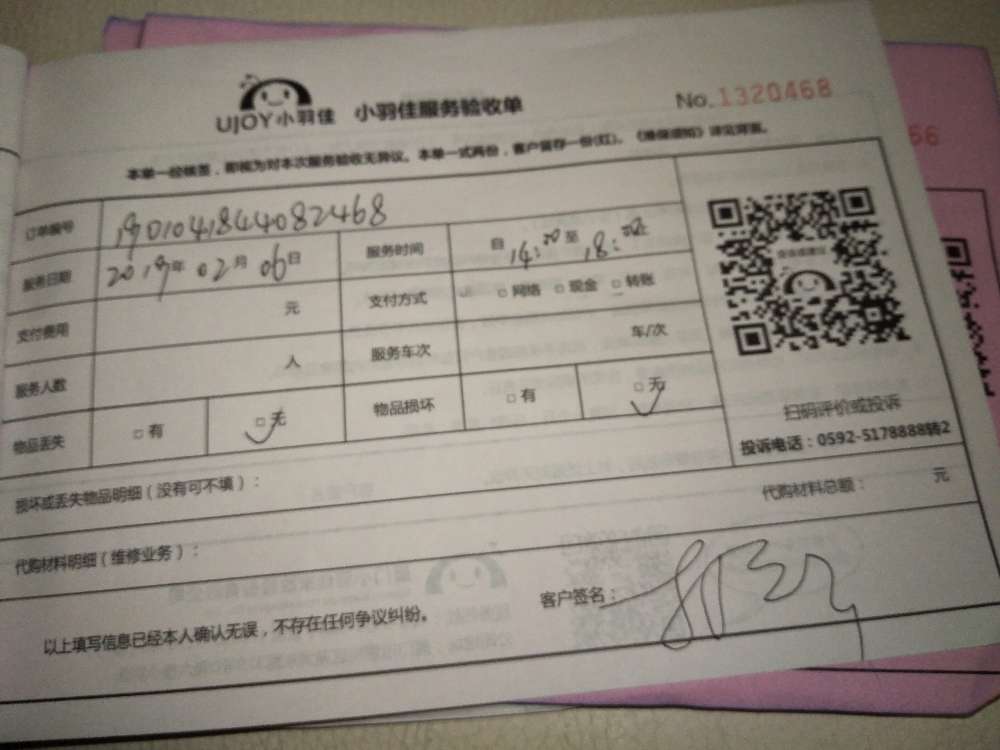 UJOY小羽佳 小羽佳服务验收单 No.1320468
本单一经核签，即视为对本次服务验收无异议。本单一式两份，客户留存一份(红)。《维保须知》详见背面。
订单编号 1901041844082468
服务日期 2019年 02月 06日 服务时间 自 14:00至 18:00止
支付费用 元 支付方式 □ 网络 □ 现金 □ 转账
服务人数 人 服务车次 车/次
物品丢失 □ 有 □ 无 物品损坏 □ 有 □ 无
扫码评价或投诉
投诉电话：0592-5178888转2
损坏或丢失物品明细（没有可不填）：
代购材料明细（维修业务）： 代购材料总额： 元
以上填写信息已经本人确认无误，不存在任何争议纠纷。 客户签名：
66